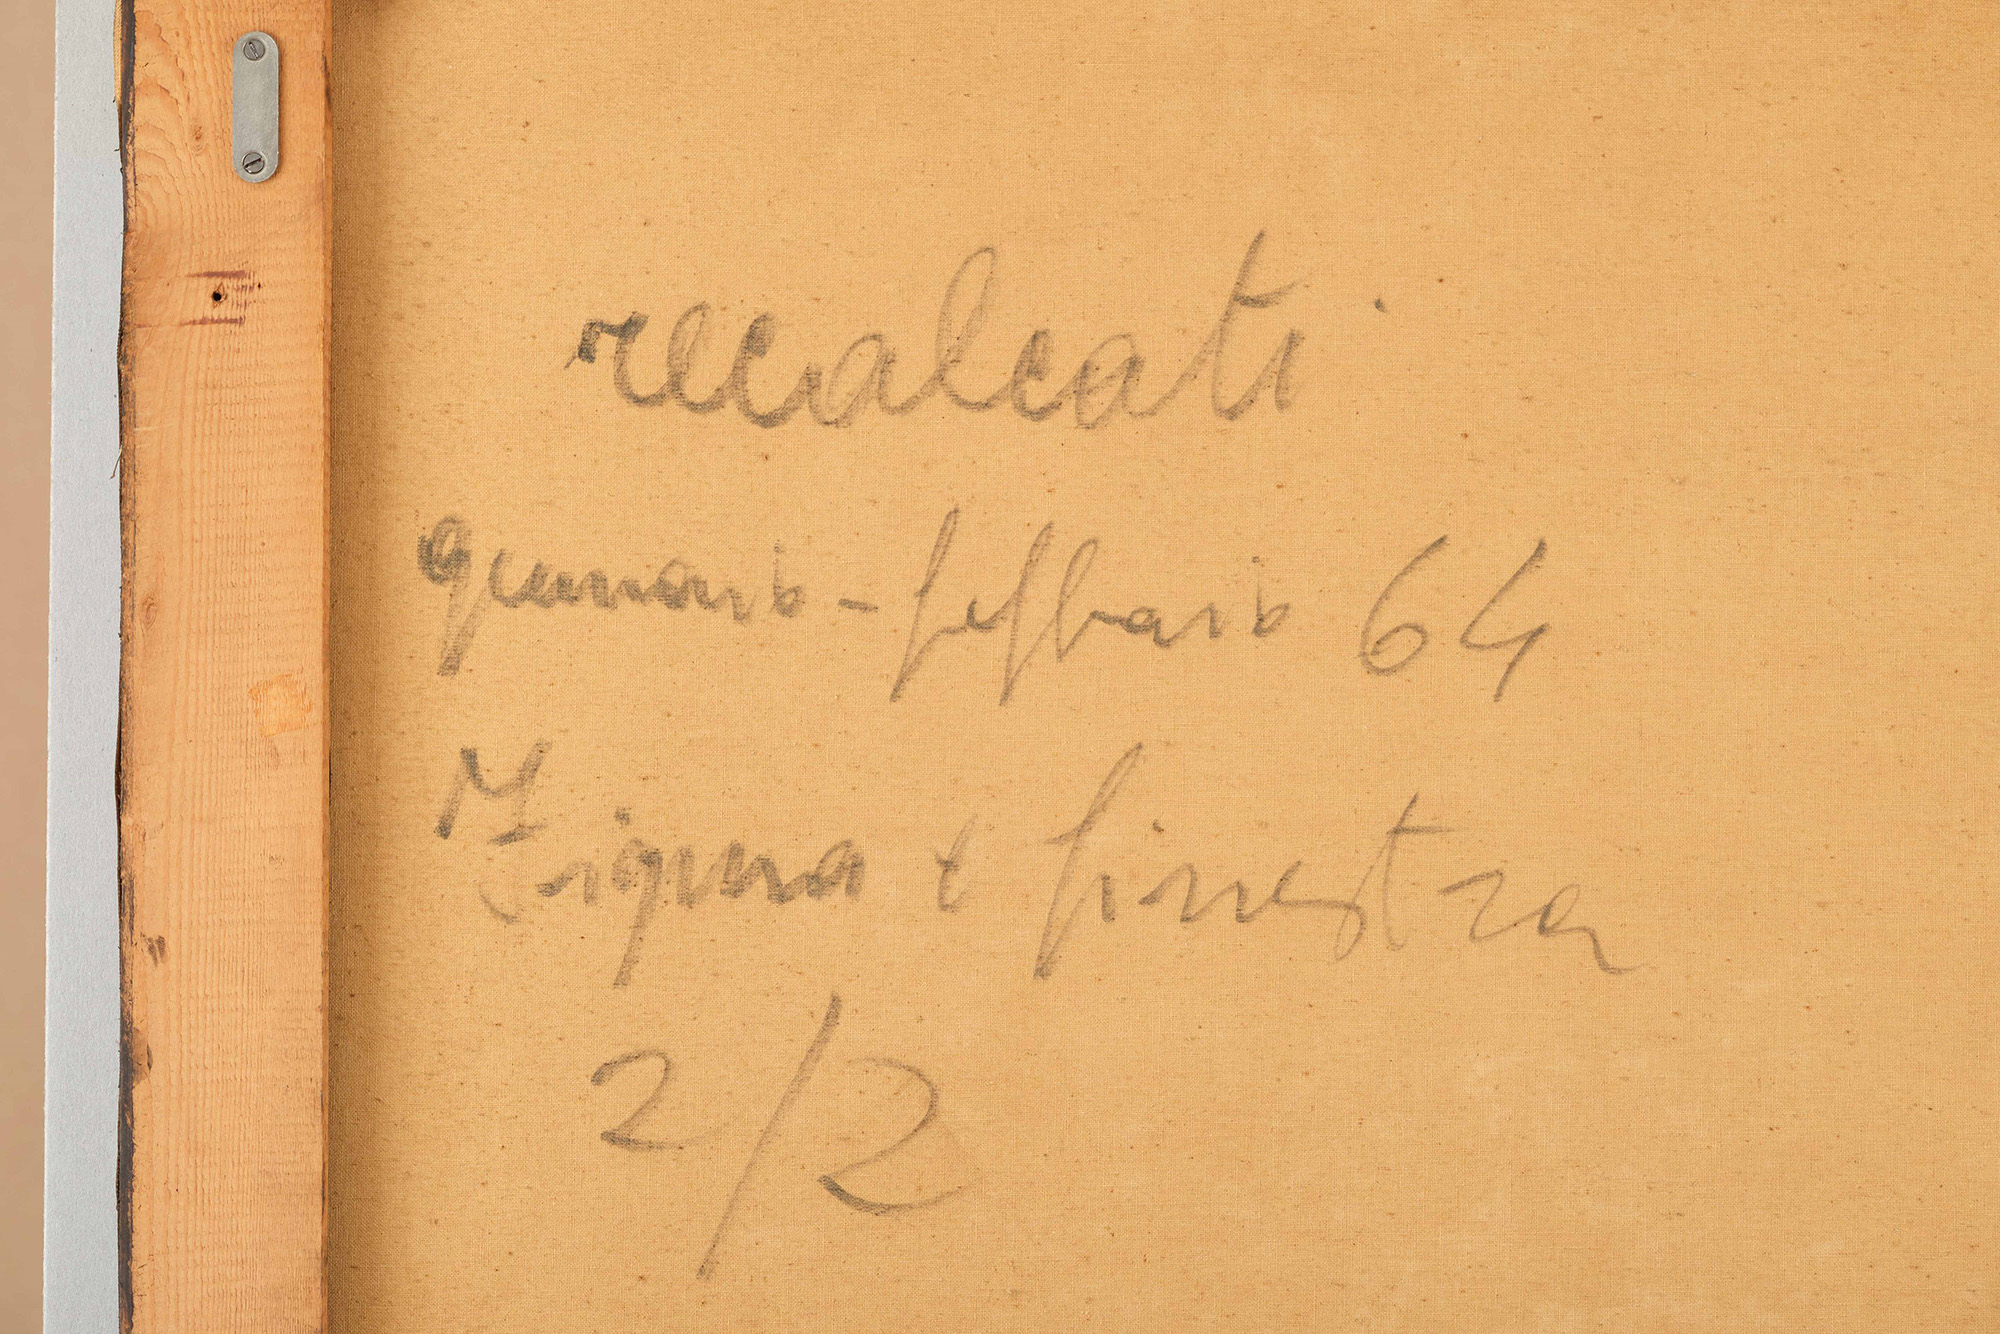 recalcati
gennaio - febbraio 64
Figura e finestra
2/2